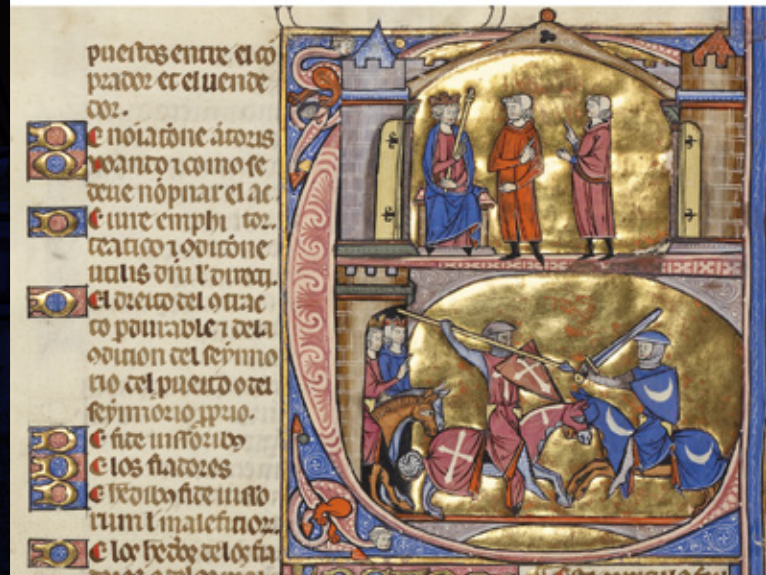 puestos entre el co
prador et el uende
dor.
De noīatione actoris
quando ⁊ como se
deue nōpnar el ac
De iure emphi tor.
teatico ⁊ ꝯditione
utilis dn̄i l' directi.
Del dreito del ꝯtrac
to pdurable ⁊ dela
ꝯdition del seynno
rio del puesto o del
seynnorio pprio.
De fide iussoribꝰ
De los fiadores
fide iusso
rum l malefitior.
De los fechos de los fia